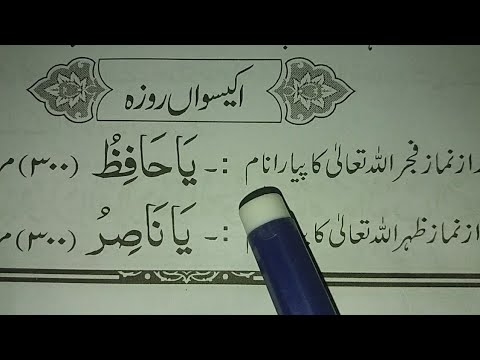 اکیسواں روزہ
از نماز فجر اللہ تعالیٰ کا پیارا نام :۔ یَا حَافِظُ (۳۰۰)
از نماز ظہر اللہ تعالیٰ کا :۔ یَا نَاصِرُ (۳۰۰)